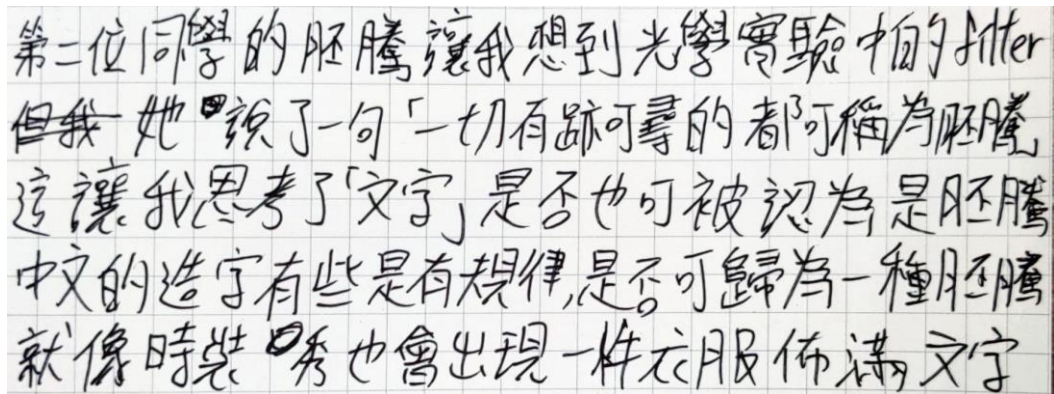 第二位同學的胚騰讓我想到光學實驗中的filter
但我她說了一句「一切有跡可尋的都可稱為胚騰」
這讓我思考了「文字」是否也可被認為是胚騰
中文的造字有些是有規律,是否可歸為一種胚騰
就像時裝秀也會出現一件衣服佈滿文字